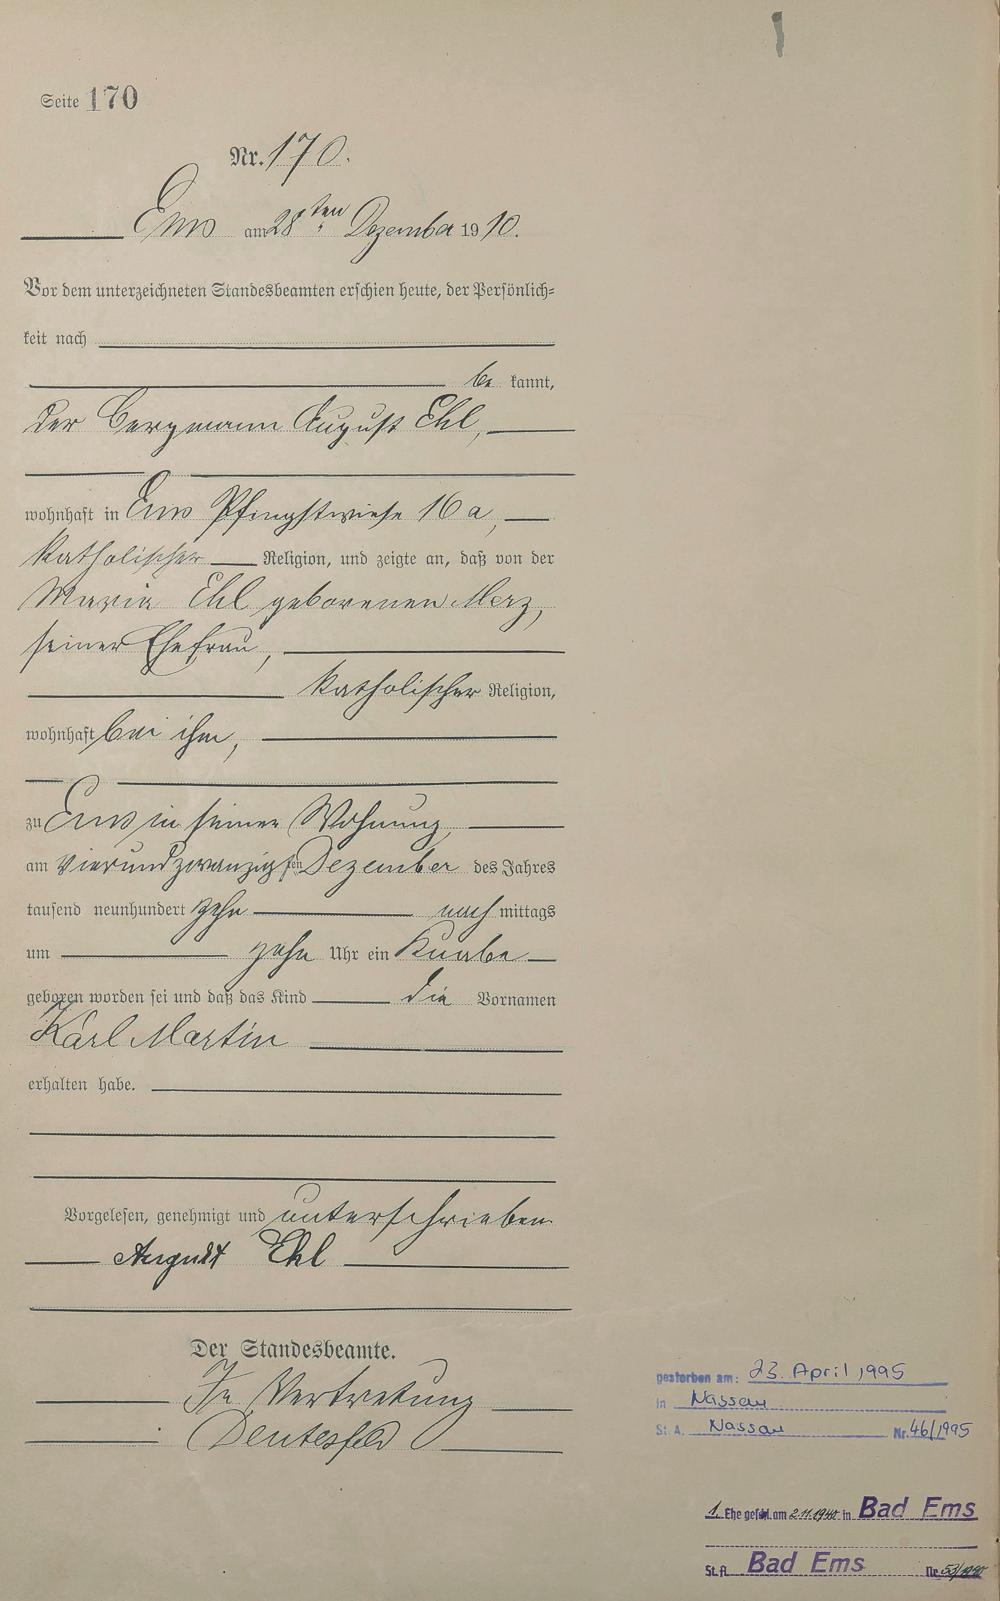 Seite 170
Nr. 170.
Ems am 28ten Dezember 1910.
Vor dem unterzeichneten Standesbeamten erschien heute, der Persönlich=
keit nach
be kannt,
der Bergmann August Ehl,
wohnhaft in Ems Pfingstwiese 16 a,
katholischer Religion, und zeigte an, daß von der
Maria Ehl geborenen Merz,
seiner Ehefrau,
katholischer Religion,
wohnhaft bei ihm,
zu Ems in seiner Wohnung,
am vierundzwanzigsten Dezember des Jahres
tausend neunhundert zehn nach mittags
um zehn Uhr ein Knabe
geboren worden sei und daß das Kind die Vornamen
Karl Martin
erhalten habe.
Vorgelesen, genehmigt und unterschrieben.
August Ehl
Der Standesbeamte.
In Vertretung
gestorben am: 23. April 1995
in Nassau
St. A. Nassau Nr. 46/1995
1. Ehe geschl. am 2.11.1940 in Bad Ems
St. A. Bad Ems Nr. 53/1940